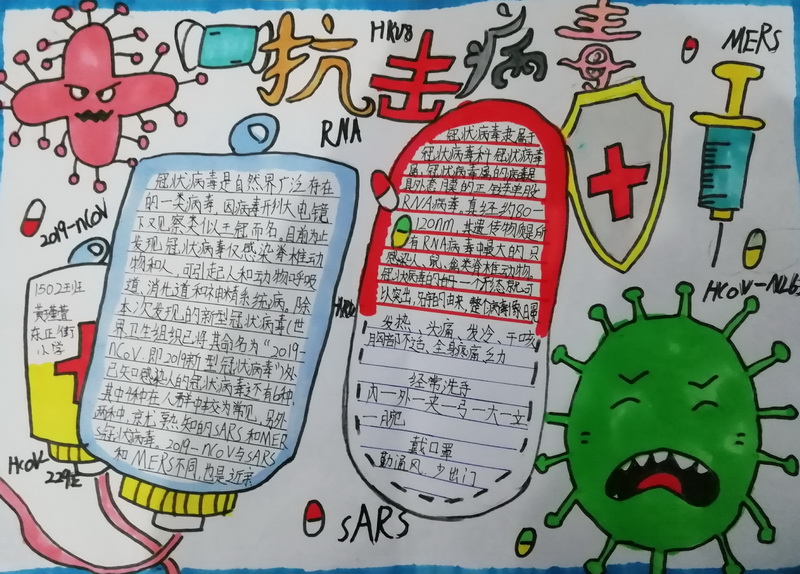 抗击病毒
HKU8
MERS
RNA
2019-nCOV
1502班
东正街
小学
HcoV
229E
冠状病毒是自然界广泛存在
的一类病毒,因病毒形状大电镜
下观察类似王冠而名,目前为止
发现冠状病毒仅感染脊椎动
物和人,可引起人和动物呼吸
道、消化道和神精系统病。除
本次发现的新型冠状病毒(世
界卫生组织已将其命名为“2019-
nCoV.即2019新型冠状病毒”)外
已知感染人的冠状病毒还有6种
其中4种在人群中较为常见,另外
两种
熟知的SARS和MER
S冠状病毒。2019-nCoV与SARS
和MERS不同,也是近亲
冠状病毒隶属于
冠状病毒科冠状病毒
属,冠状病毒属的病毒是
具外套膜的正链单股
RNA病毒,直经约80-
120nm,其遗传物质是所
有RNA病毒中最大的,只
感染人、鼠、禽类脊椎动物。
冠状病毒的的一个形态就可
以突出
的由来,整个病毒
发热、头痛、发冷、干咳
胸部不适、全身疼痛乏力
经常洗手
内一外一夹一弓一大一立
一腕
戴口罩
勤通风、少出门
HcoV-NL63
SARS